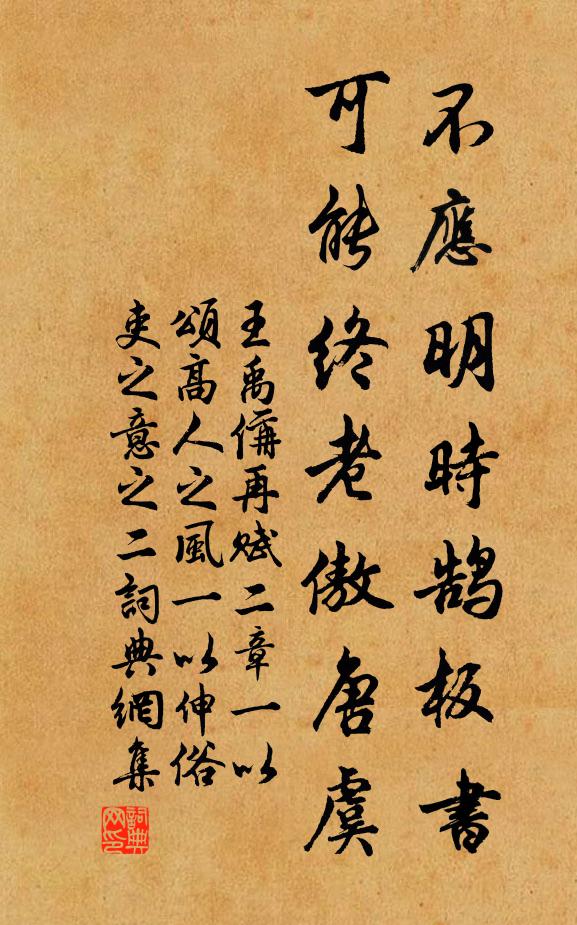 不應明時鹄板書
可能終老傲唐虞
王禹偁再賦二章一以
頌高人之風一以伸俗
吏之意之二詞典網集
詞典网印